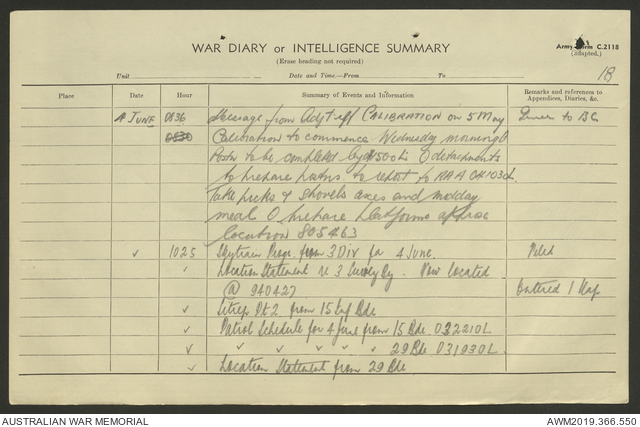 WAR DIARY or INTELLIGENCE SUMMARY
(Erase heading not required)
Army Form C.2118
(adapted.)
18
Unit Date and Time—From To
Place Date Hour Summary of Events and Information Remarks and references to Appendices, Diaries, &c.
4 JUNE 0836 Message from Adjt CALIBRATION on 5 May to BC
0830 Calibration to commence Wednesday morning
to be completed by 1500 detachments
to prepare to report to RAA
Take picks & shovels axes and midday
meal prepare platforms approx
location 805463
✓ 1025 Skytrain Progr. from 3 Div for 4 June. Filed
✓ Location Statement 3 Survey Now located
@ 940427 Entered 1 Map
✓ Sitrep Pt 2 from 15 Inf Bde
✓ Patrol Schedule for 4 June from 15 Bde 032210L
✓ ✓ ✓ ✓ ✓ ✓ 29 Bde 031930L
✓ Location Statement from 29 Bde
AUSTRALIAN WAR MEMORIAL AWM2019.366.550